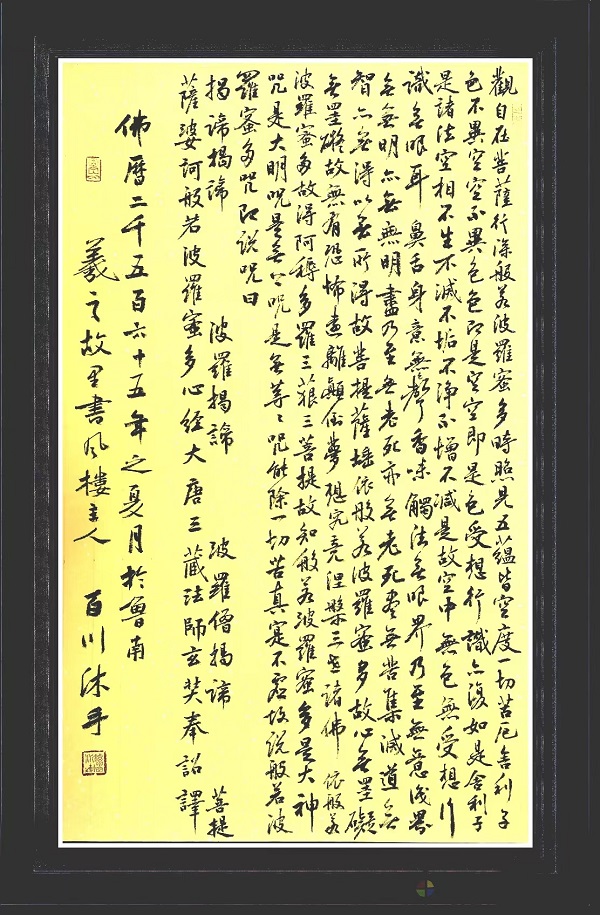 觀自在菩薩行深般若波羅蜜多時照見五蘊皆空度一切苦厄舍利子
色不異空空不異色色即是空空即是色受想行識亦復如是舍利子
是諸法空相不生不滅不垢不淨不增不減是故空中無色無受想行
識無眼耳鼻舌身意無聲香味觸法無眼界乃至無意識界
無無明亦無無明盡乃至無老死亦無老死盡無苦集滅道無
智亦無得以無所得故菩提薩埵依般若波羅蜜多故心無罣礙
無罣礙故無有恐怖遠離顛倒夢想究竟涅槃三世諸佛依般若
波羅蜜多故得阿耨多羅三藐三菩提故知般若波羅蜜多是大神
咒是大明咒是無上咒是無等々咒能除一切苦真實不虛故說般若波
羅蜜多咒即說咒曰
揭諦揭諦 波羅揭諦 波羅僧揭諦 菩提
薩婆訶般若波羅蜜多心經大唐三藏法師玄奘奉詔譯
佛曆二千五百六十五年之夏月於魯南
羲之故里書風樓主人 百川沐手